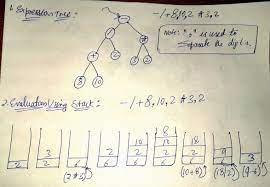 1. Expression Tree:
- / + 8, 10, 2 * 3, 2
Note: "," is used to
separate the digits.
+
8 10 3 2
2. Evaluation Using Stack:
- / + 8, 10, 2 * 3, 2
10 8 18
3 2 8 2 2 9
2 2 6 6 6 6 6 6 3
(2*3) (10+8) (18/2) (9-6)